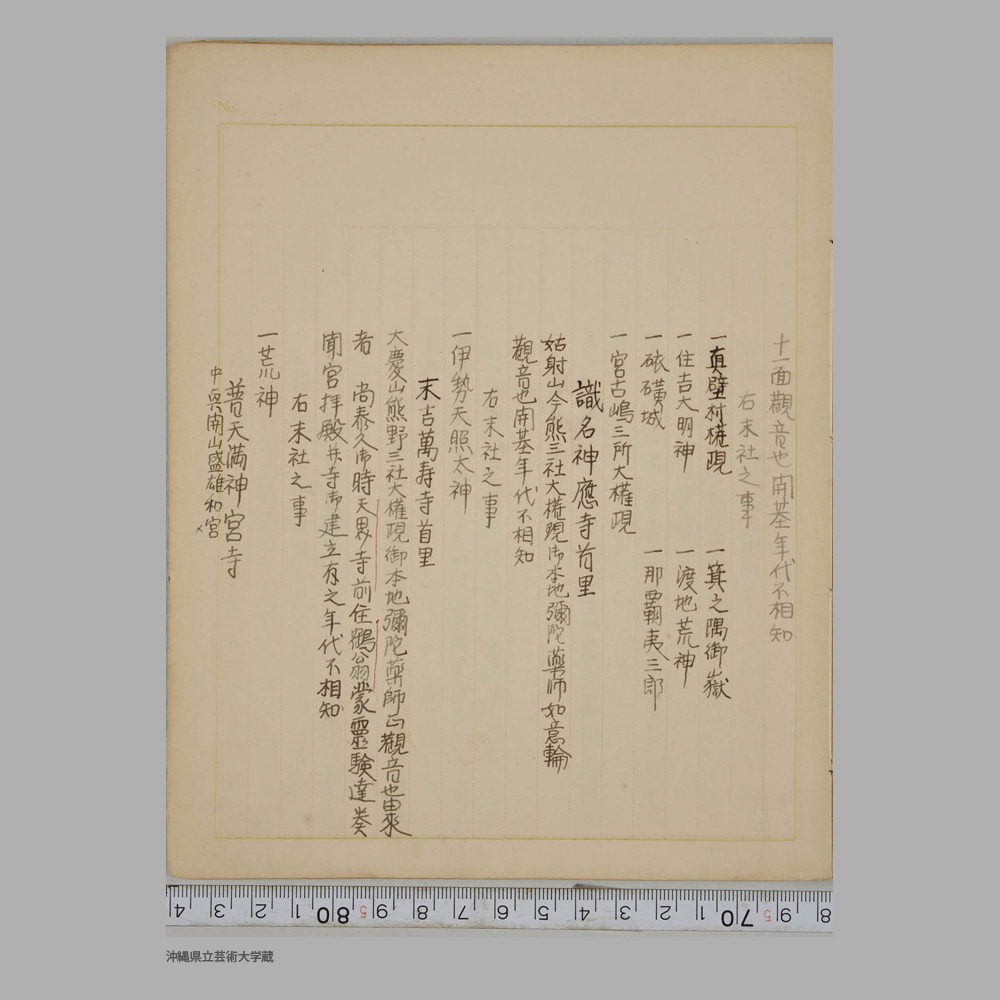 No.
十一面觀音也開基年代不相知
右末社之事
一真壁村権現 一箕之隅御嶽
一住吉大明神 一渡地荒神
一硫磺城 一那覇夷三郎
一宮古嶋三所大權現
識名神應寺首里
姑射山今熊三社大権現御本地彌陀藥師如意輪
觀音也開基年代不相知
右末社之事
一伊勢天照太神
末吉萬寿寺首里
大慶山熊野三社大權現御本地彌陀藥師正觀音也由來
者 尚泰久御時天界寺前住鶴翁蒙靈験達奏
聞宮拝殿并寺御建立有之年代不相知
右末社之事
一荒神
普天満神宮寺
中興開山盛雄和宮
8 9 5 70 1 2 3 4 5 6 7 8 9 5 80 1 2 3 4
沖縄県立芸術大学蔵